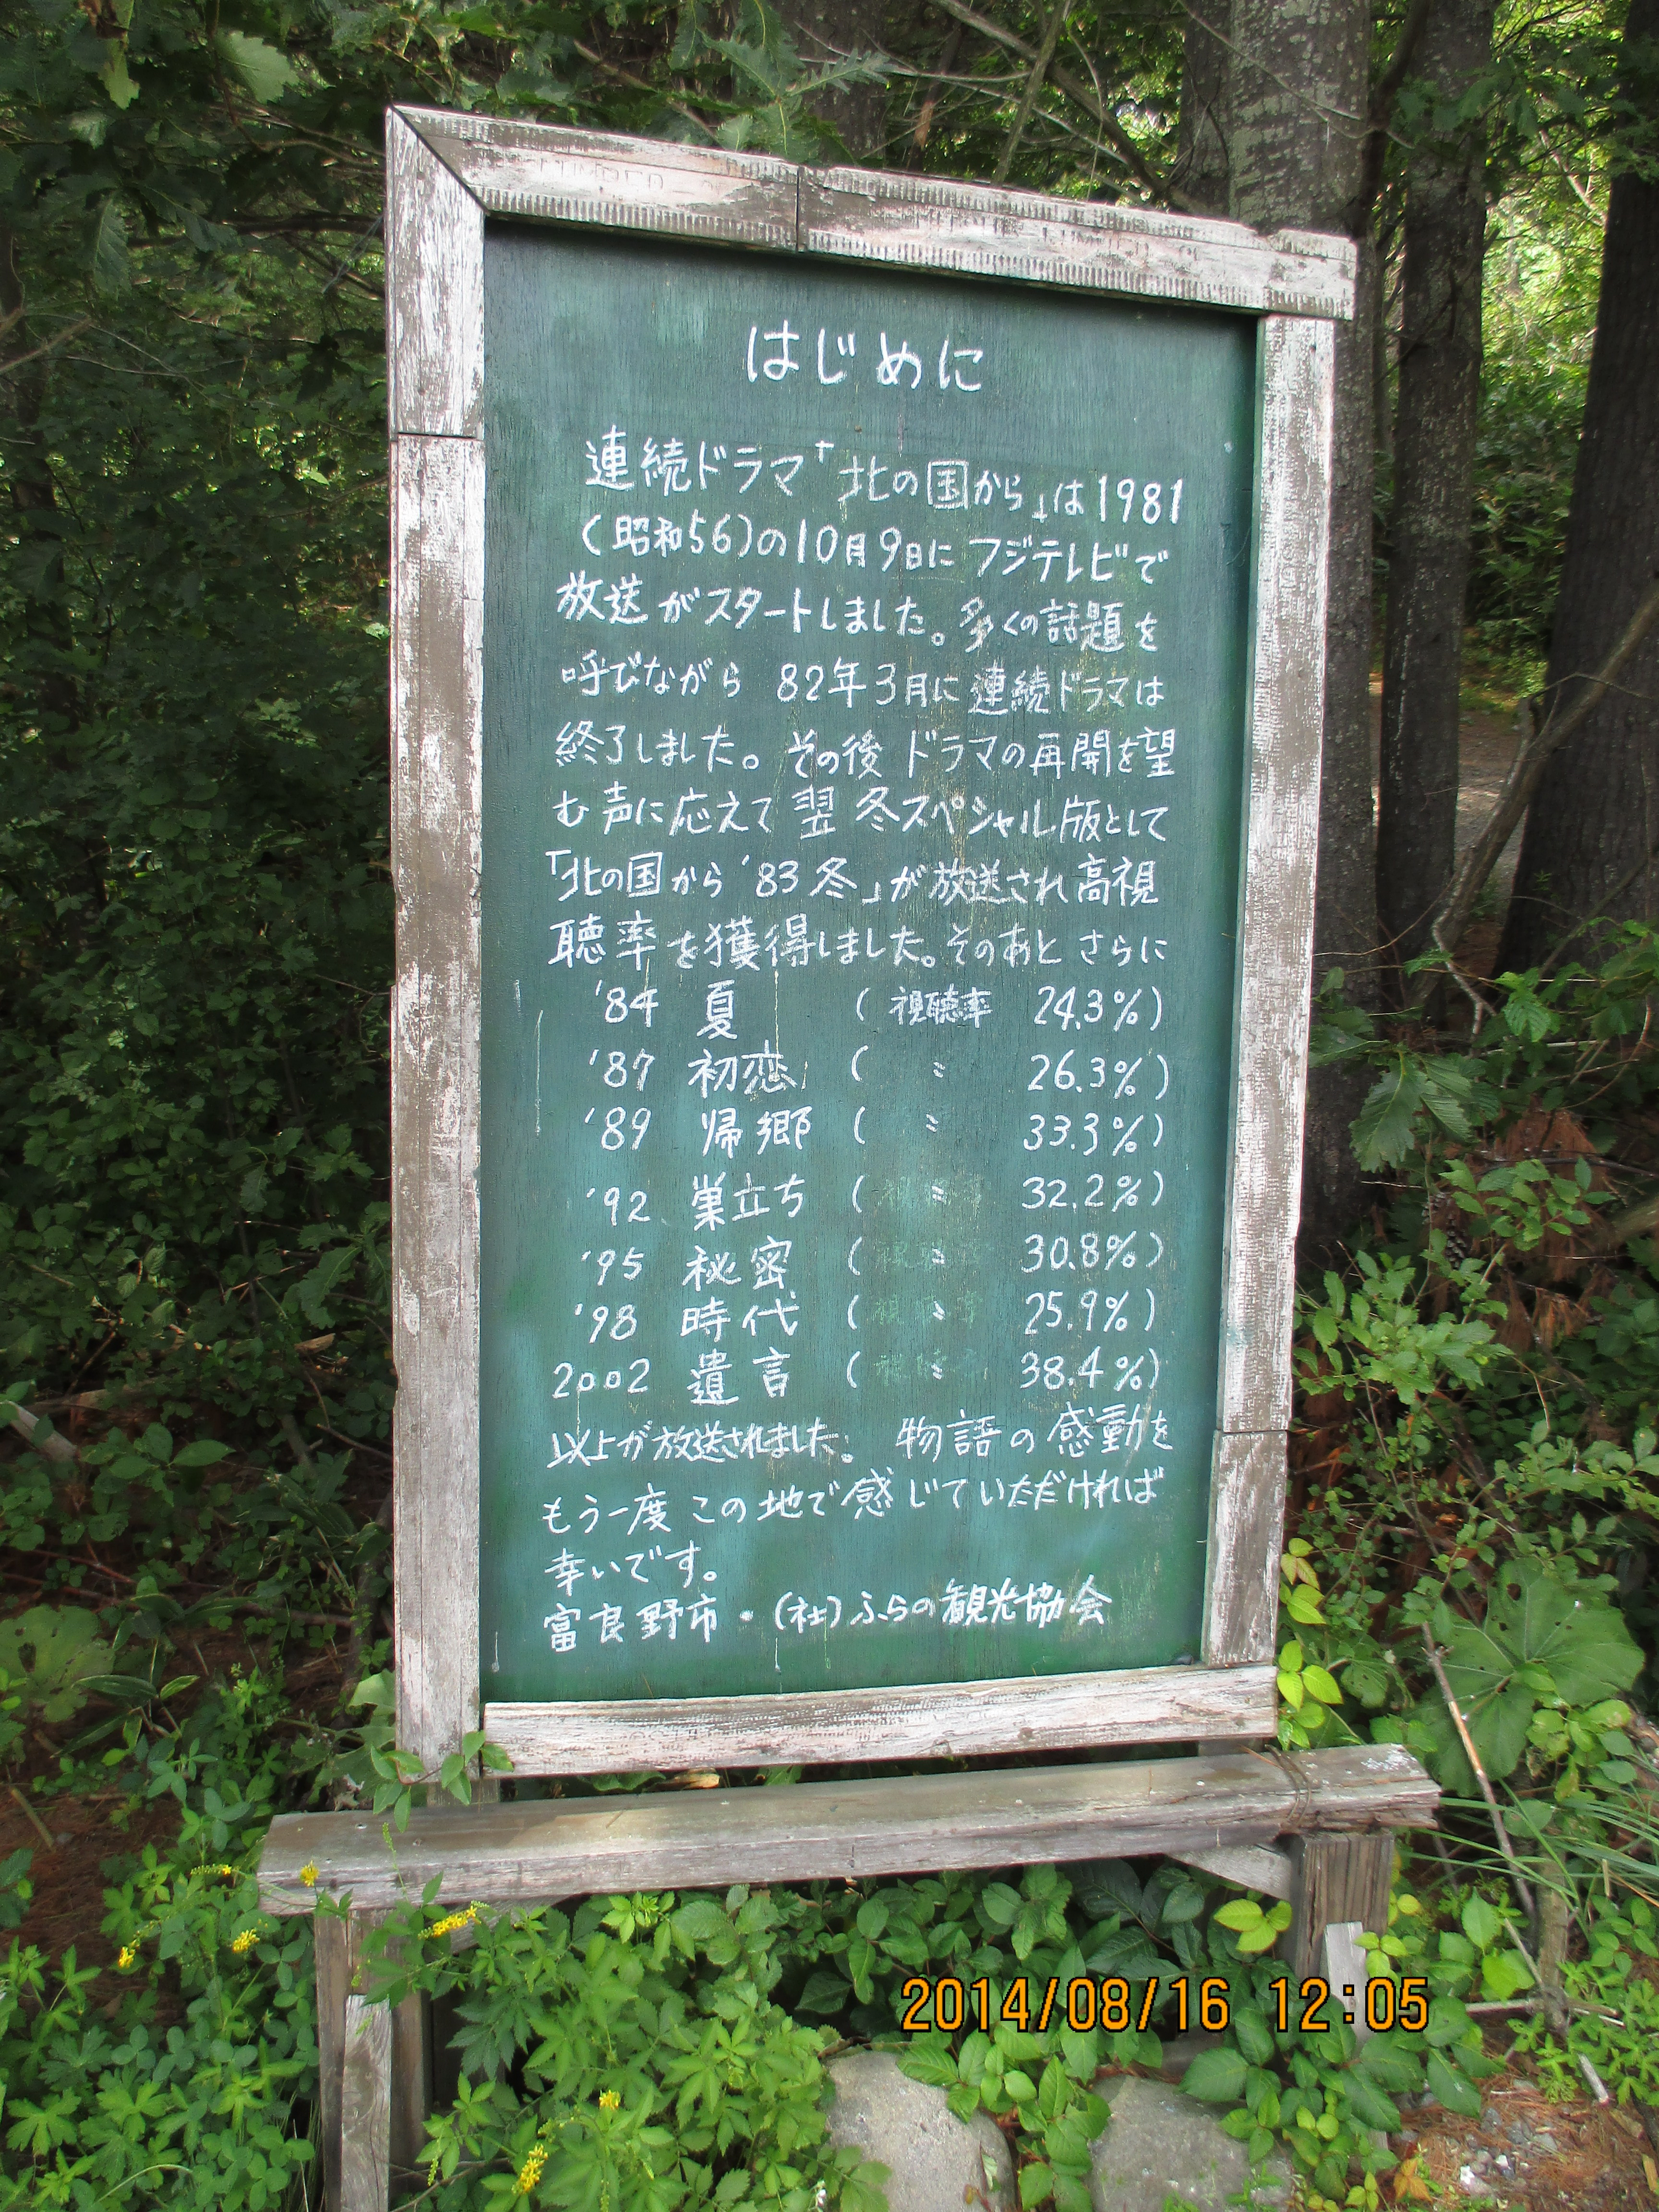 はじめに
連続ドラマ「北の国から」は1981
(昭和56)の10月9日にフジテレビで
放送がスタートしました。多くの話題を
呼びながら 82年3月に連続ドラマは
終了しました。その後ドラマの再開を望
む声に応えて翌冬スペシャル版として
「北の国から'83冬」が放送され高視
聴率を獲得しました。そのあとさらに
'84 夏 ( 視聴率 24.3%)
'87 初恋 ( 〃 26.3%)
'89 帰郷 ( 〃 33.3%)
'92 巣立ち ( 〃 32.2%)
'95 秘密 ( 〃 30.8%)
'98 時代 ( 〃 25.9%)
2002 遺言 ( 〃 38.4%)
以上が放送されました。 物語の感動を
もう一度この地で感じていただければ
幸いです。
富良野市・(社)ふらの観光協会
2014/08/16 12:05